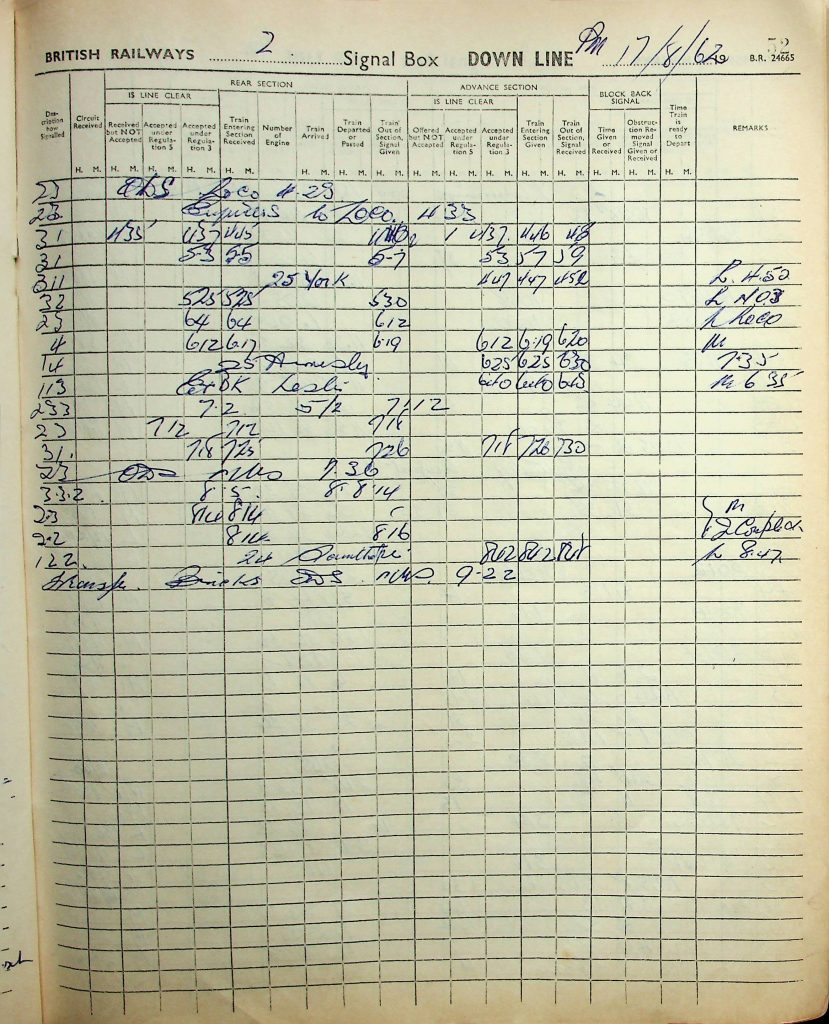 BRITISH RAILWAYS 2 Signal Box DOWN LINE PM 17/8/62 19 52 B.R. 24665
REAR SECTION ADVANCE SECTION
IS LINE CLEAR IS LINE CLEAR BLOCK BACK SIGNAL
Description how Signalled Circuit Received Received but NOT Accepted Accepted under Regulation 5 Accepted under Regulation 3 Train Entering Section Received Number of Engine Train Arrived Train Departed or Passed Train Out of Section, Signal Given Offered but NOT Accepted Accepted under Regulation 5 Accepted under Regulation 3 Train Entering Section Given Train Out of Section, Signal Received Time Given or Received Obstruction Removed Signal Given or Received Time Train is ready to Depart REMARKS
H. M. H. M. H. M. H. M. H. M. H. M. H. M. H. M. H. M. H. M. H. M. H. M. H. M. H. M. H. M. H. M.
23 Loco 4.25
23 Engines to Loco 4 33
31 435 437 445 1 437 446 48
31 5-3 55 5-7 53 57 59
311 25 York 447 447 452 L 4.50
32 525 525 530
23 64 64 612 Loco
4 612 617 6.19 612 6.19 620 M
14 25 Annesley 625 625 630 7.35
113 640 640 645 M 6 35
233 7.2 5/2 7/12
23 712 712 718
31. 718 725 726 718 726 730
23 7.36
3.3.2 8.5. 8. 8.14
2.3 814 814 M
2.2 814 816
122. 24 842 842 848 L 8.47
Transfer 9-22